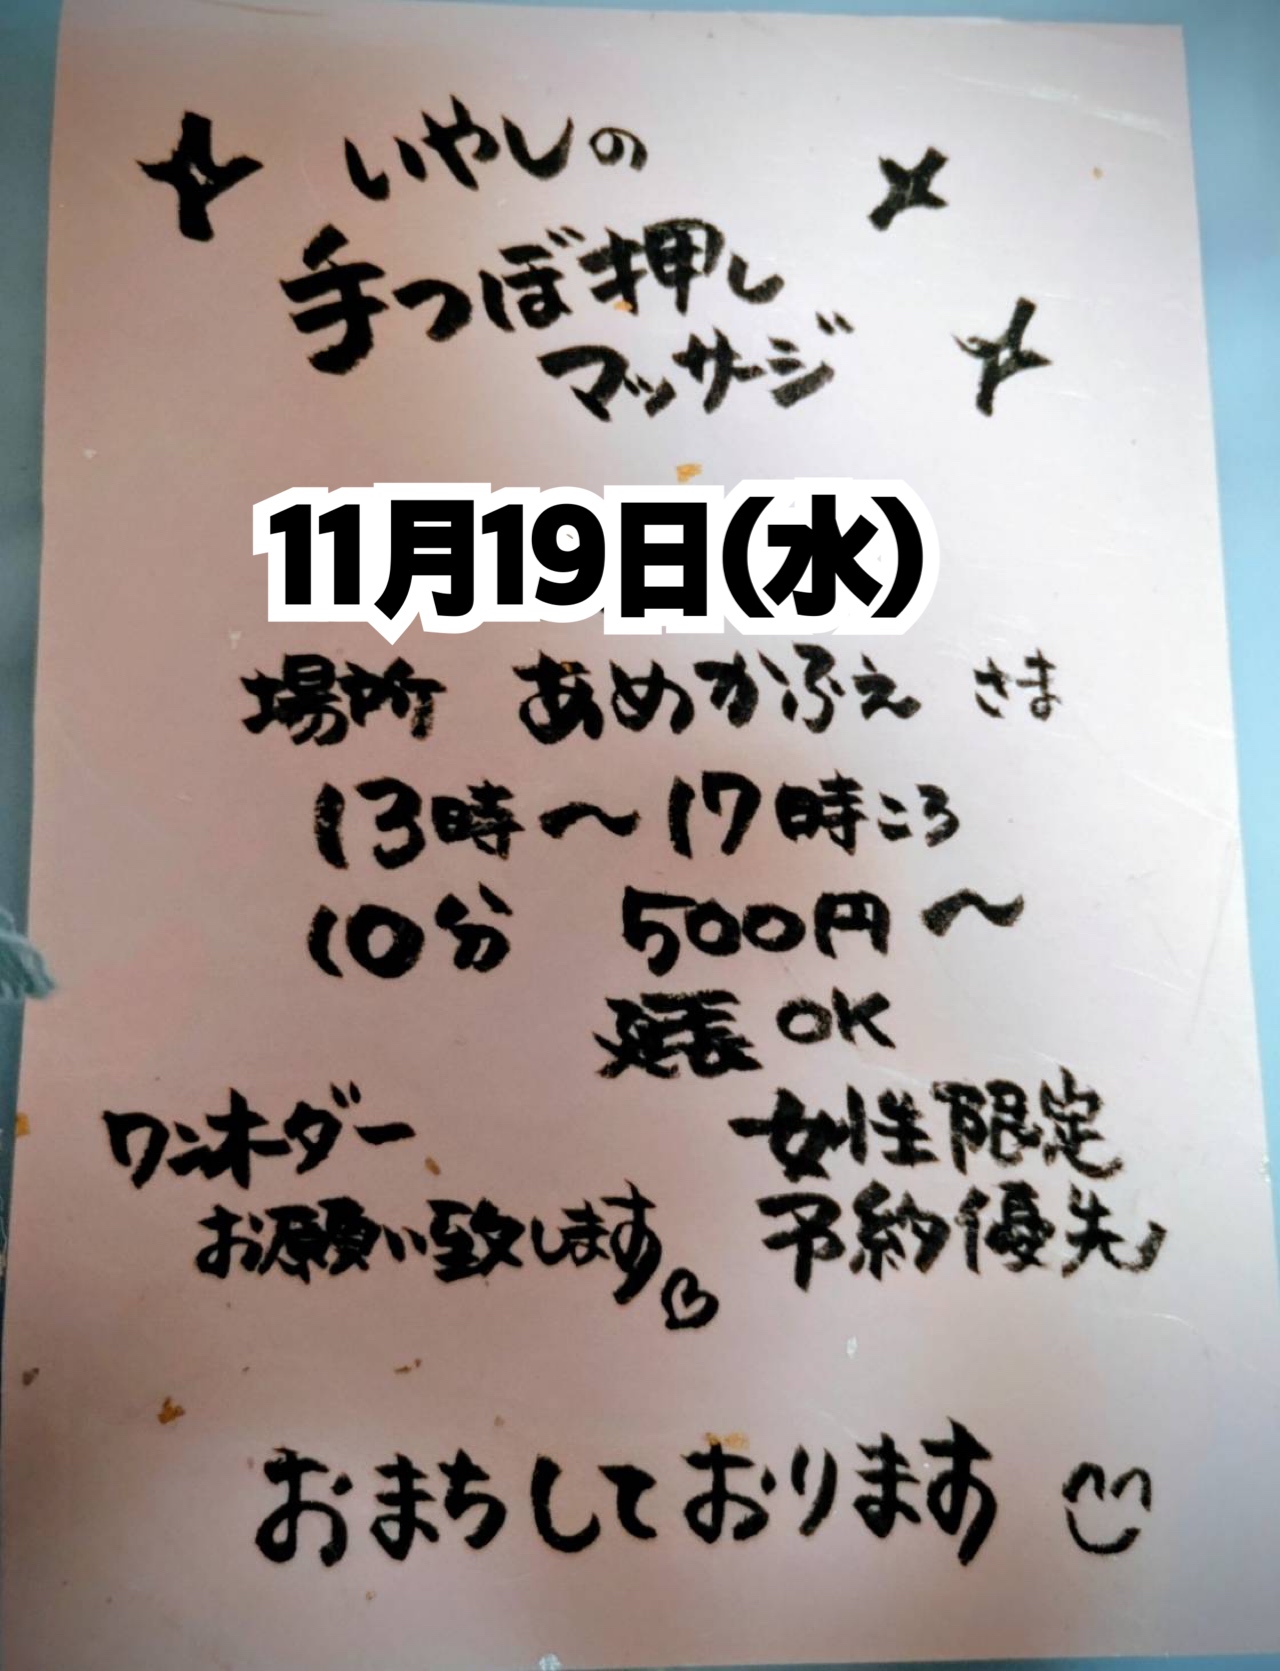 いやしの
手つぼ押し
マッサージ
11月19日(水)
場所 あめかふぇ さま
13時〜17時ころ
10分 500円〜
延長 OK
ワンオーダー
お願い致します
女性限定
予約優先
おまちしております